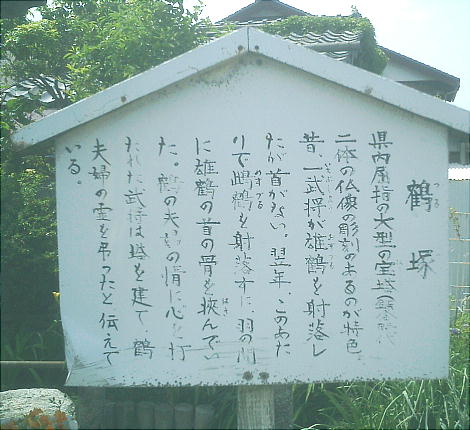 鶴塚
つる
県内屈指の大型の宝塔(鎌倉時代)
二体の仏像の彫刻のあるのが特色。
昔、一武将が雄鶴を射落し
たが首がない。翌年、このあた
りで雌鶴を射落すに、羽の間
に雄鶴の首の骨を挟んでい
た。鶴の夫婦の情に心を打
たれた武将は塔を建て、鶴
夫婦の霊を弔ったと伝えて
いる。